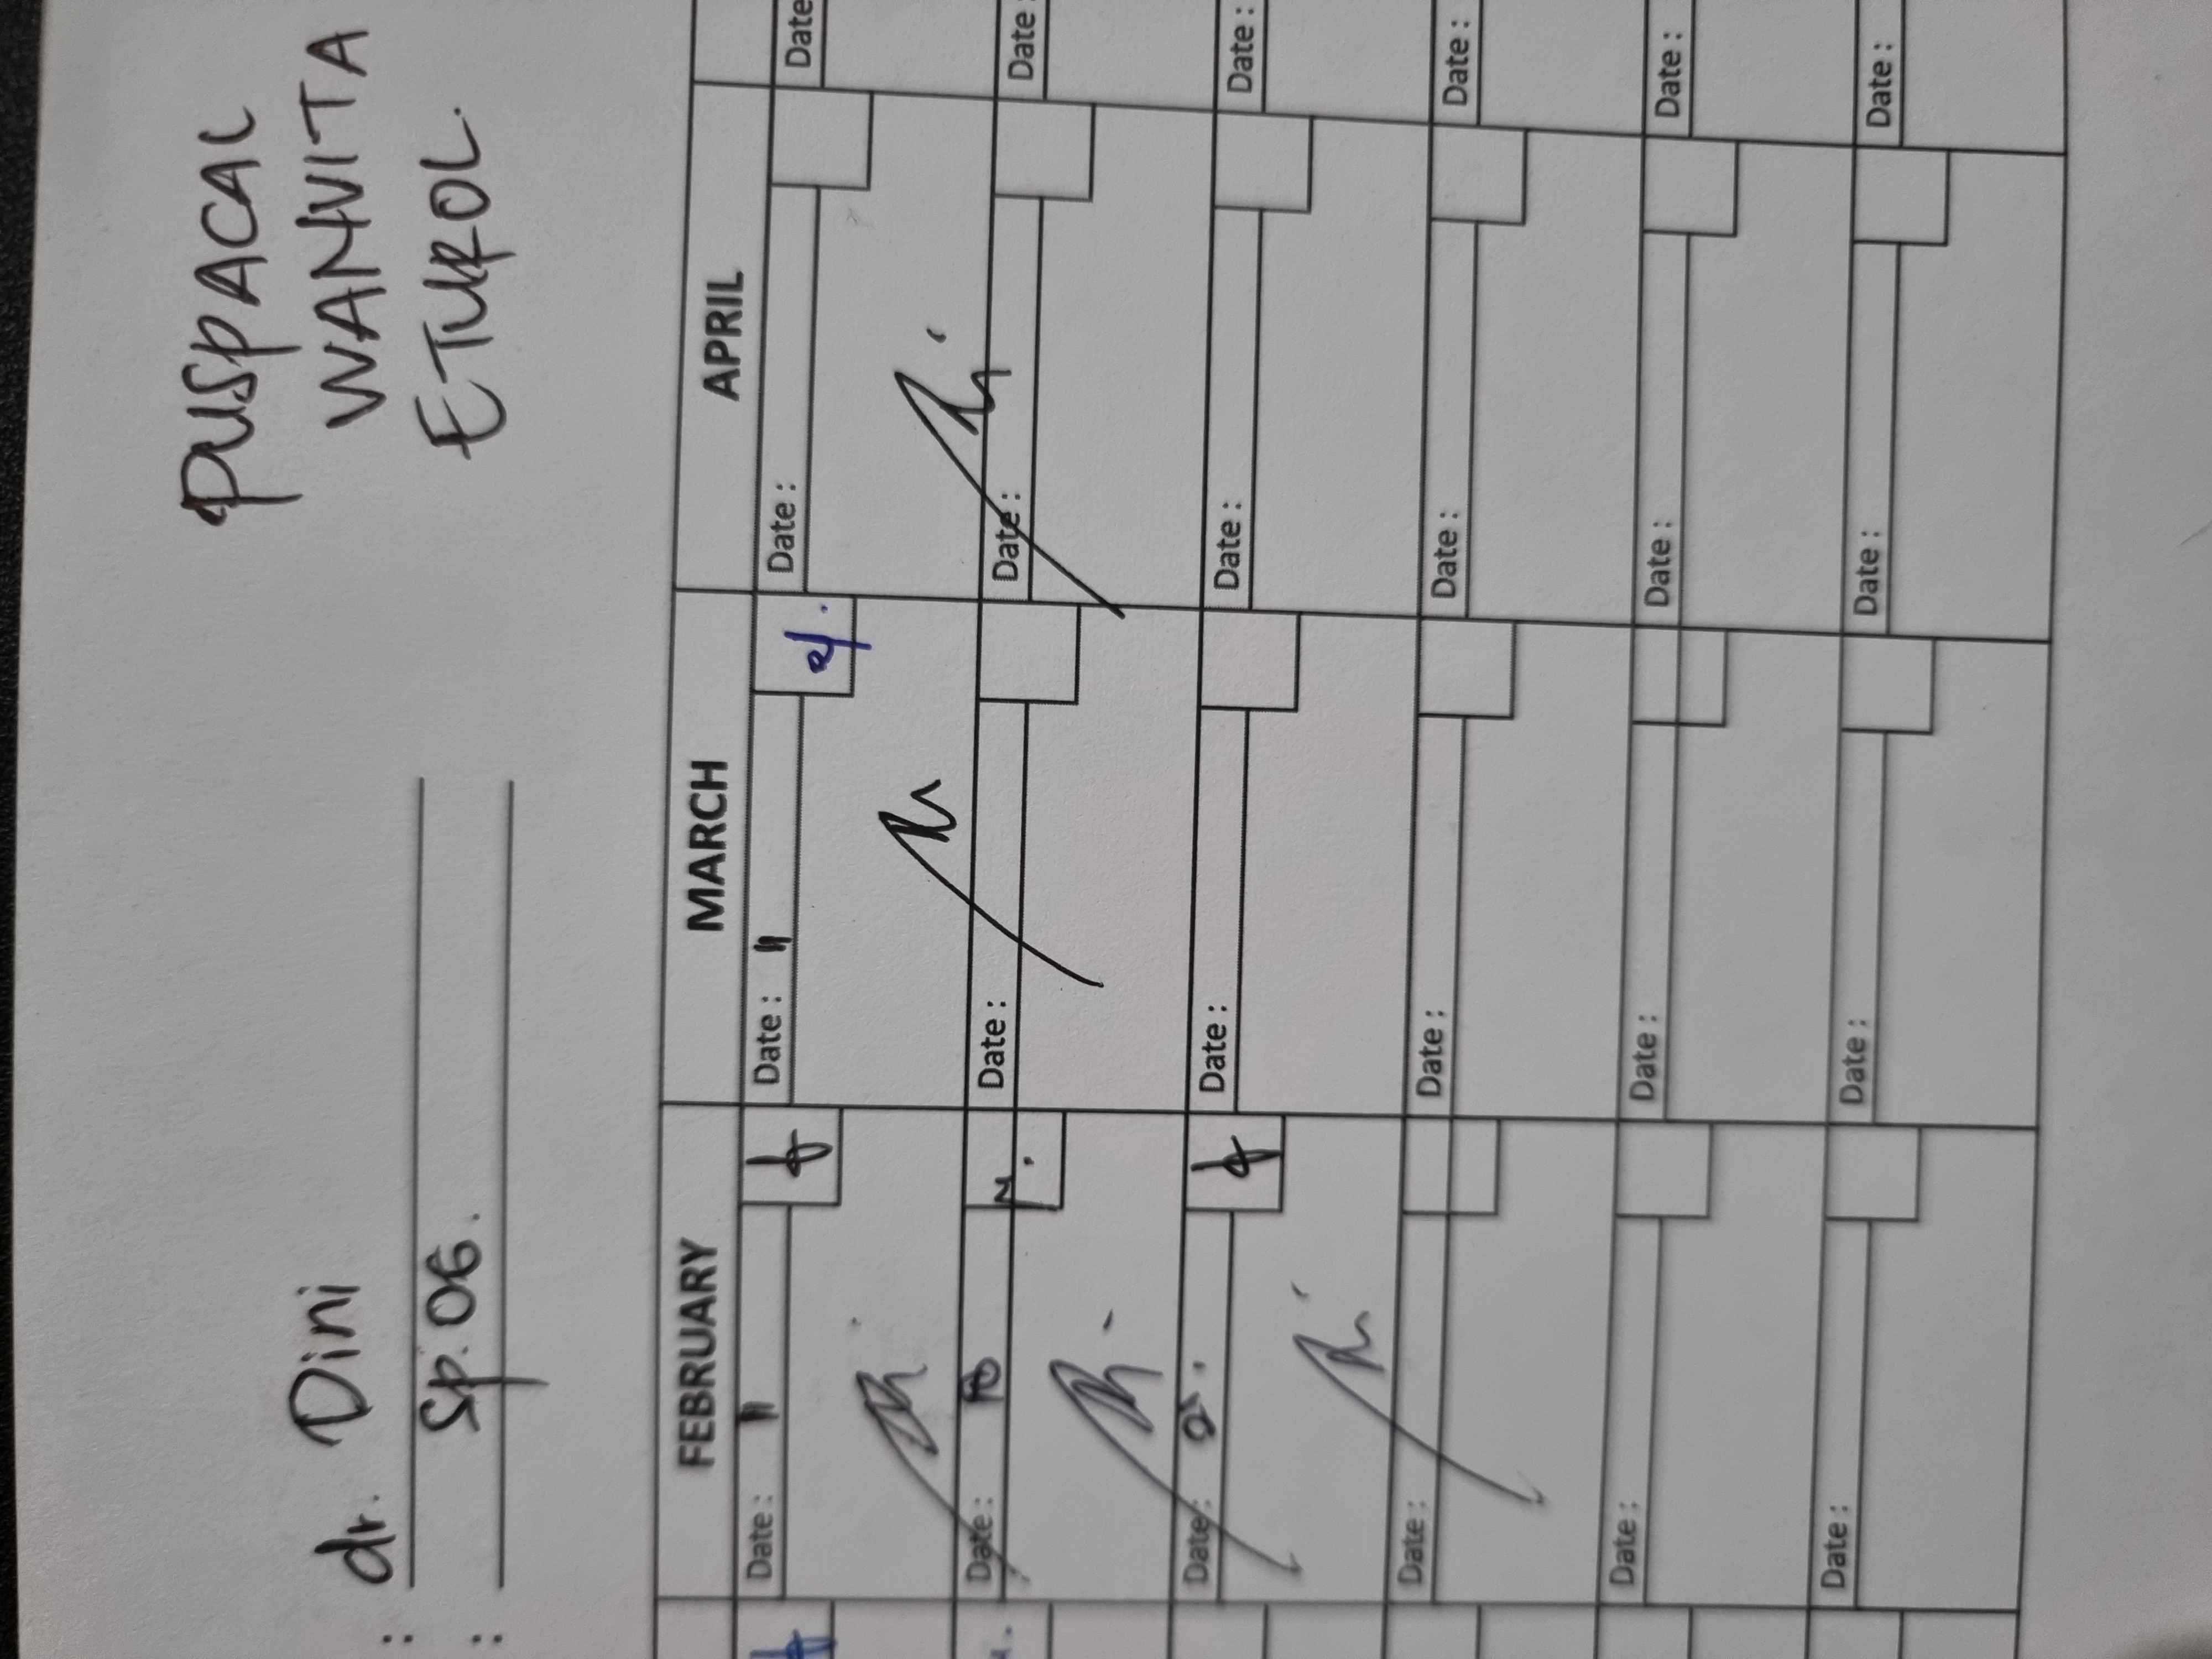 : dr. Dini
: Sp.OG.
PUSPACAL
WANVITA
ETUROL.
FEBRUARY MARCH APRIL
Date : 11 Date : 11 Date : Date
Date : Date : Date : Date :
Date : Date : Date : Date :
Date : Date : Date : Date :
Date : Date : Date : Date :
Date : Date : Date : Date :